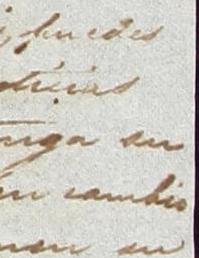 puedes
ticias
nga su
en cambio
nen su